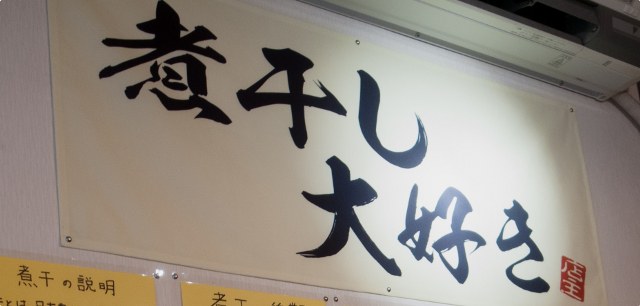 煮干し
大好き
店主
煮干の説明